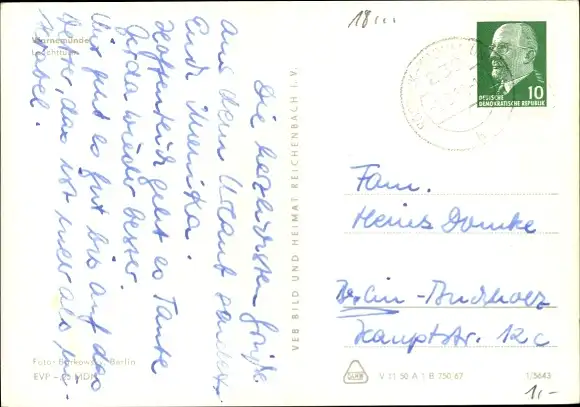 18...
Warnemünde
Leuchtturm
Die herzlichsten Grüße
aus dem Urlaub sendet
Euch Monika.
Hoffentlich geht es Tante
Gerda wieder besser.
Mir geht es gut bis auf das
Wetter, das ist mehr als mi-
serabel.
Foto: Barkowsky, Berlin
EVP MDN
VEB BILD UND HEIMAT REICHENBACH I. V.
DEUTSCHE
DEMOKRATISCHE REPUBLIK
10
Fam.
Heinz Domke
Berlin-Buchholz
Hauptstr. 12c
V 11 50 A 1 B 750/67
1/5643
1,-